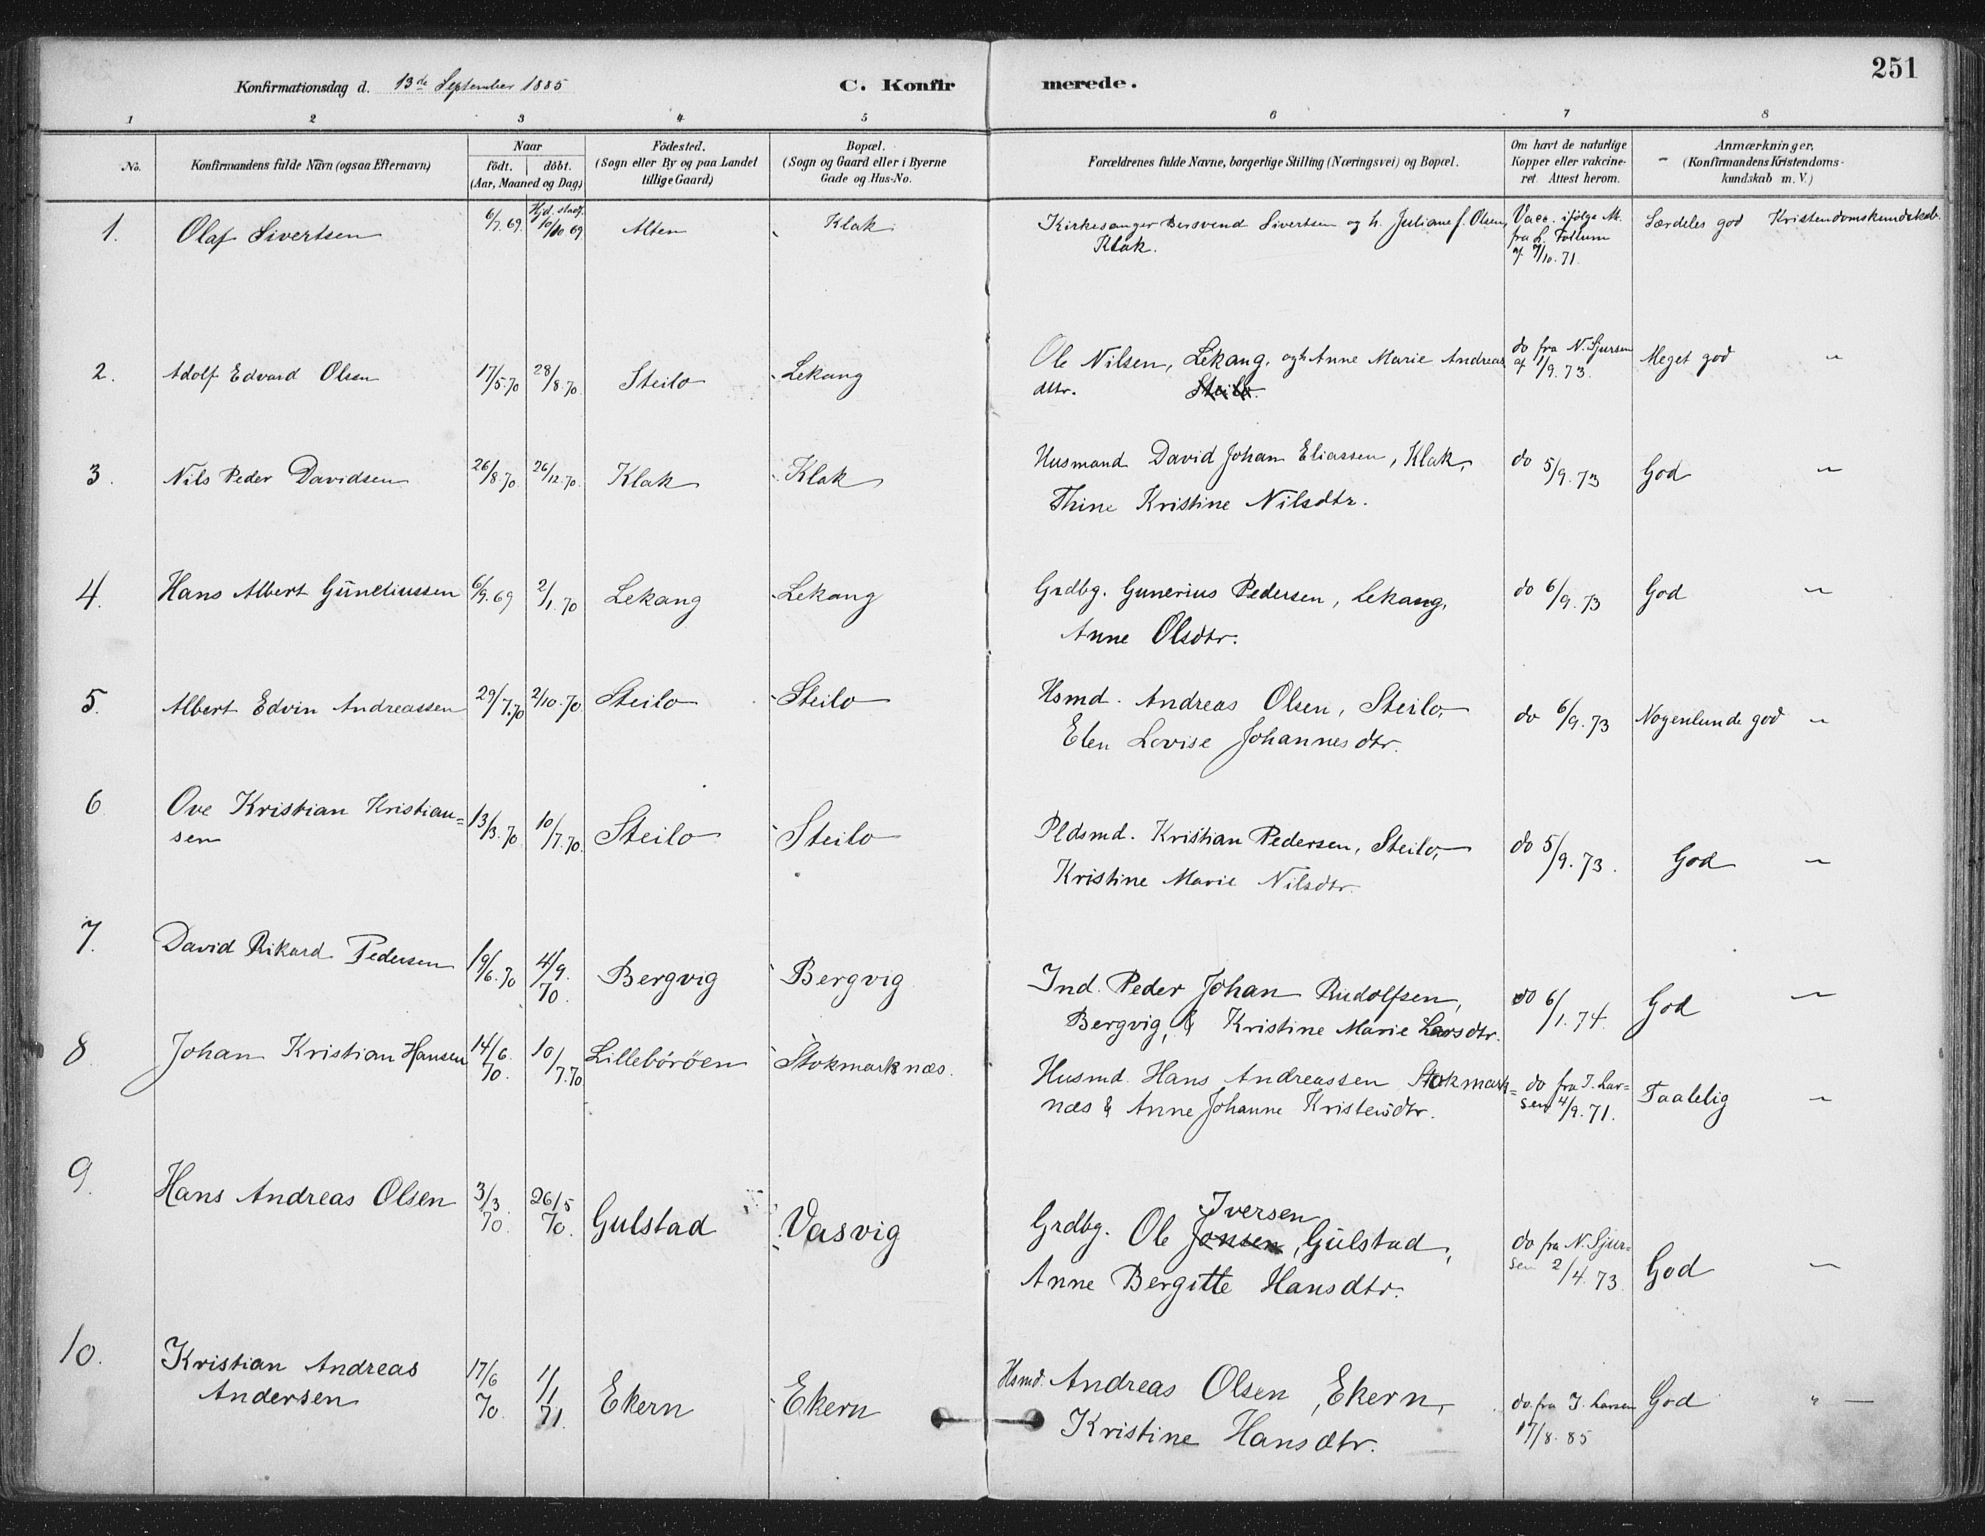 251
Konfirmationsdag d. 13de September 1885 C. Konfirmerede.
1 2 3 4 5 6 7 8
No. Konfirmandens fulde Navn (ogsaa Efternavn) Naar født. døbt. (Aar, Maaned og Dag) Födested. (Sogn eller By og paa Landet tillige Gaard) Bopæl. (Sogn og Gaard eller i Byerne Gade og Hus-No. Forældrenes fulde Navne, borgerlige Stilling (Næringsvei) og Bopæl. Om havt de naturlige Kopper eller vakcineret. Attest herom. Anmærkninger, (Konfirmandens Kristendomskundskab m. V.)
1. Olaf Sivertsen 6/7 69. Hjd. 10/10 69 Alten Klak Kirkesanger Bersvend Sivertsen og h. Juliane f. Olsen,
Klak. Vacc. ifølge At. fra L. Follum af 7/10. 71. Særdeles god Kristendomskundskab.
2. Adolf Edvard Olsen 17/5.70 28/8.70. Steilo Lekang Ole Nilsen, Lekang, og h. Anne Marie Andreas
dttr. Steilo. do fra N. Sjursen af 1/9.73. Meget god "
3. Nils Peder Davidsen 26/8.70 26/12.70. Klak Klak Husmand David Johan Eliassen, Klak,
Thine Kristine Nilsdtr. do 5/9.73 God "
4. Hans Albert Guneliussen 6/9.69 2/1.70 Lekang Lekang Grdbg. Gunerius Pedersen, Lekang,
Anne Olsdtr. do 6/9.73 God "
5. Albert Edvin Andreassen 29/7.70 2/10.70 Steilo Steilo Hsmd. Andreas Olsen, Steilo,
Elen Lovise Johannesdtr. do 6/9.73 Nogenlunde god "
6 Ove Kristian Kristian=
sen 13/3.70 10/7.70. Steilo Steilo Pldsmd. Kristian Pedersen, Steilo,
Kristine Marie Nilsdtr. do 5/9.73. God "
7. David Rikard Pedersen 19/6.70 4/9.70. Bergvig Bergvig Ind. Peder Johan Rudolfsen,
Bergvig, & Kristine Marie Larsdtr. do 6/1.74. God "
8. Johan Kristian Hansen 14/6.70. 10/7.70 Lilleböröen Stokmarknæs. Husmd. Hans Andreassen Stokmark=
næs & Anne Johanne Kristensdtr. do fra I. Larsen 4/9.71. Taalelig "
9. Hans Andreas Olsen 3/3.70. 26/5 70. Gulstad Vasvig Grdbg. Ole Jonsen Iversen, Gulstad,
Anne Bergitte Hansdtr. do fra N. Sjursen 2/4.73 God "
10. Kristian Andreas
Andersen 17/6 70. 1/1 71. Ekern Ekern Hsmd. Andreas Olsen, Ekern,
Kristine Hansdtr. do. fra I. Larsen 17/8.85 God "